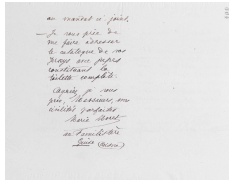 au mandat ci-joint.
— Je vous prie de
me faire adresser
le catalogue de vos
jupes
constituant la
toilette complète.
Agréez, je vous
prie, Messieurs, mes
civilités parfaites
Marie Moret
au Familistère
Guise (Aisne)